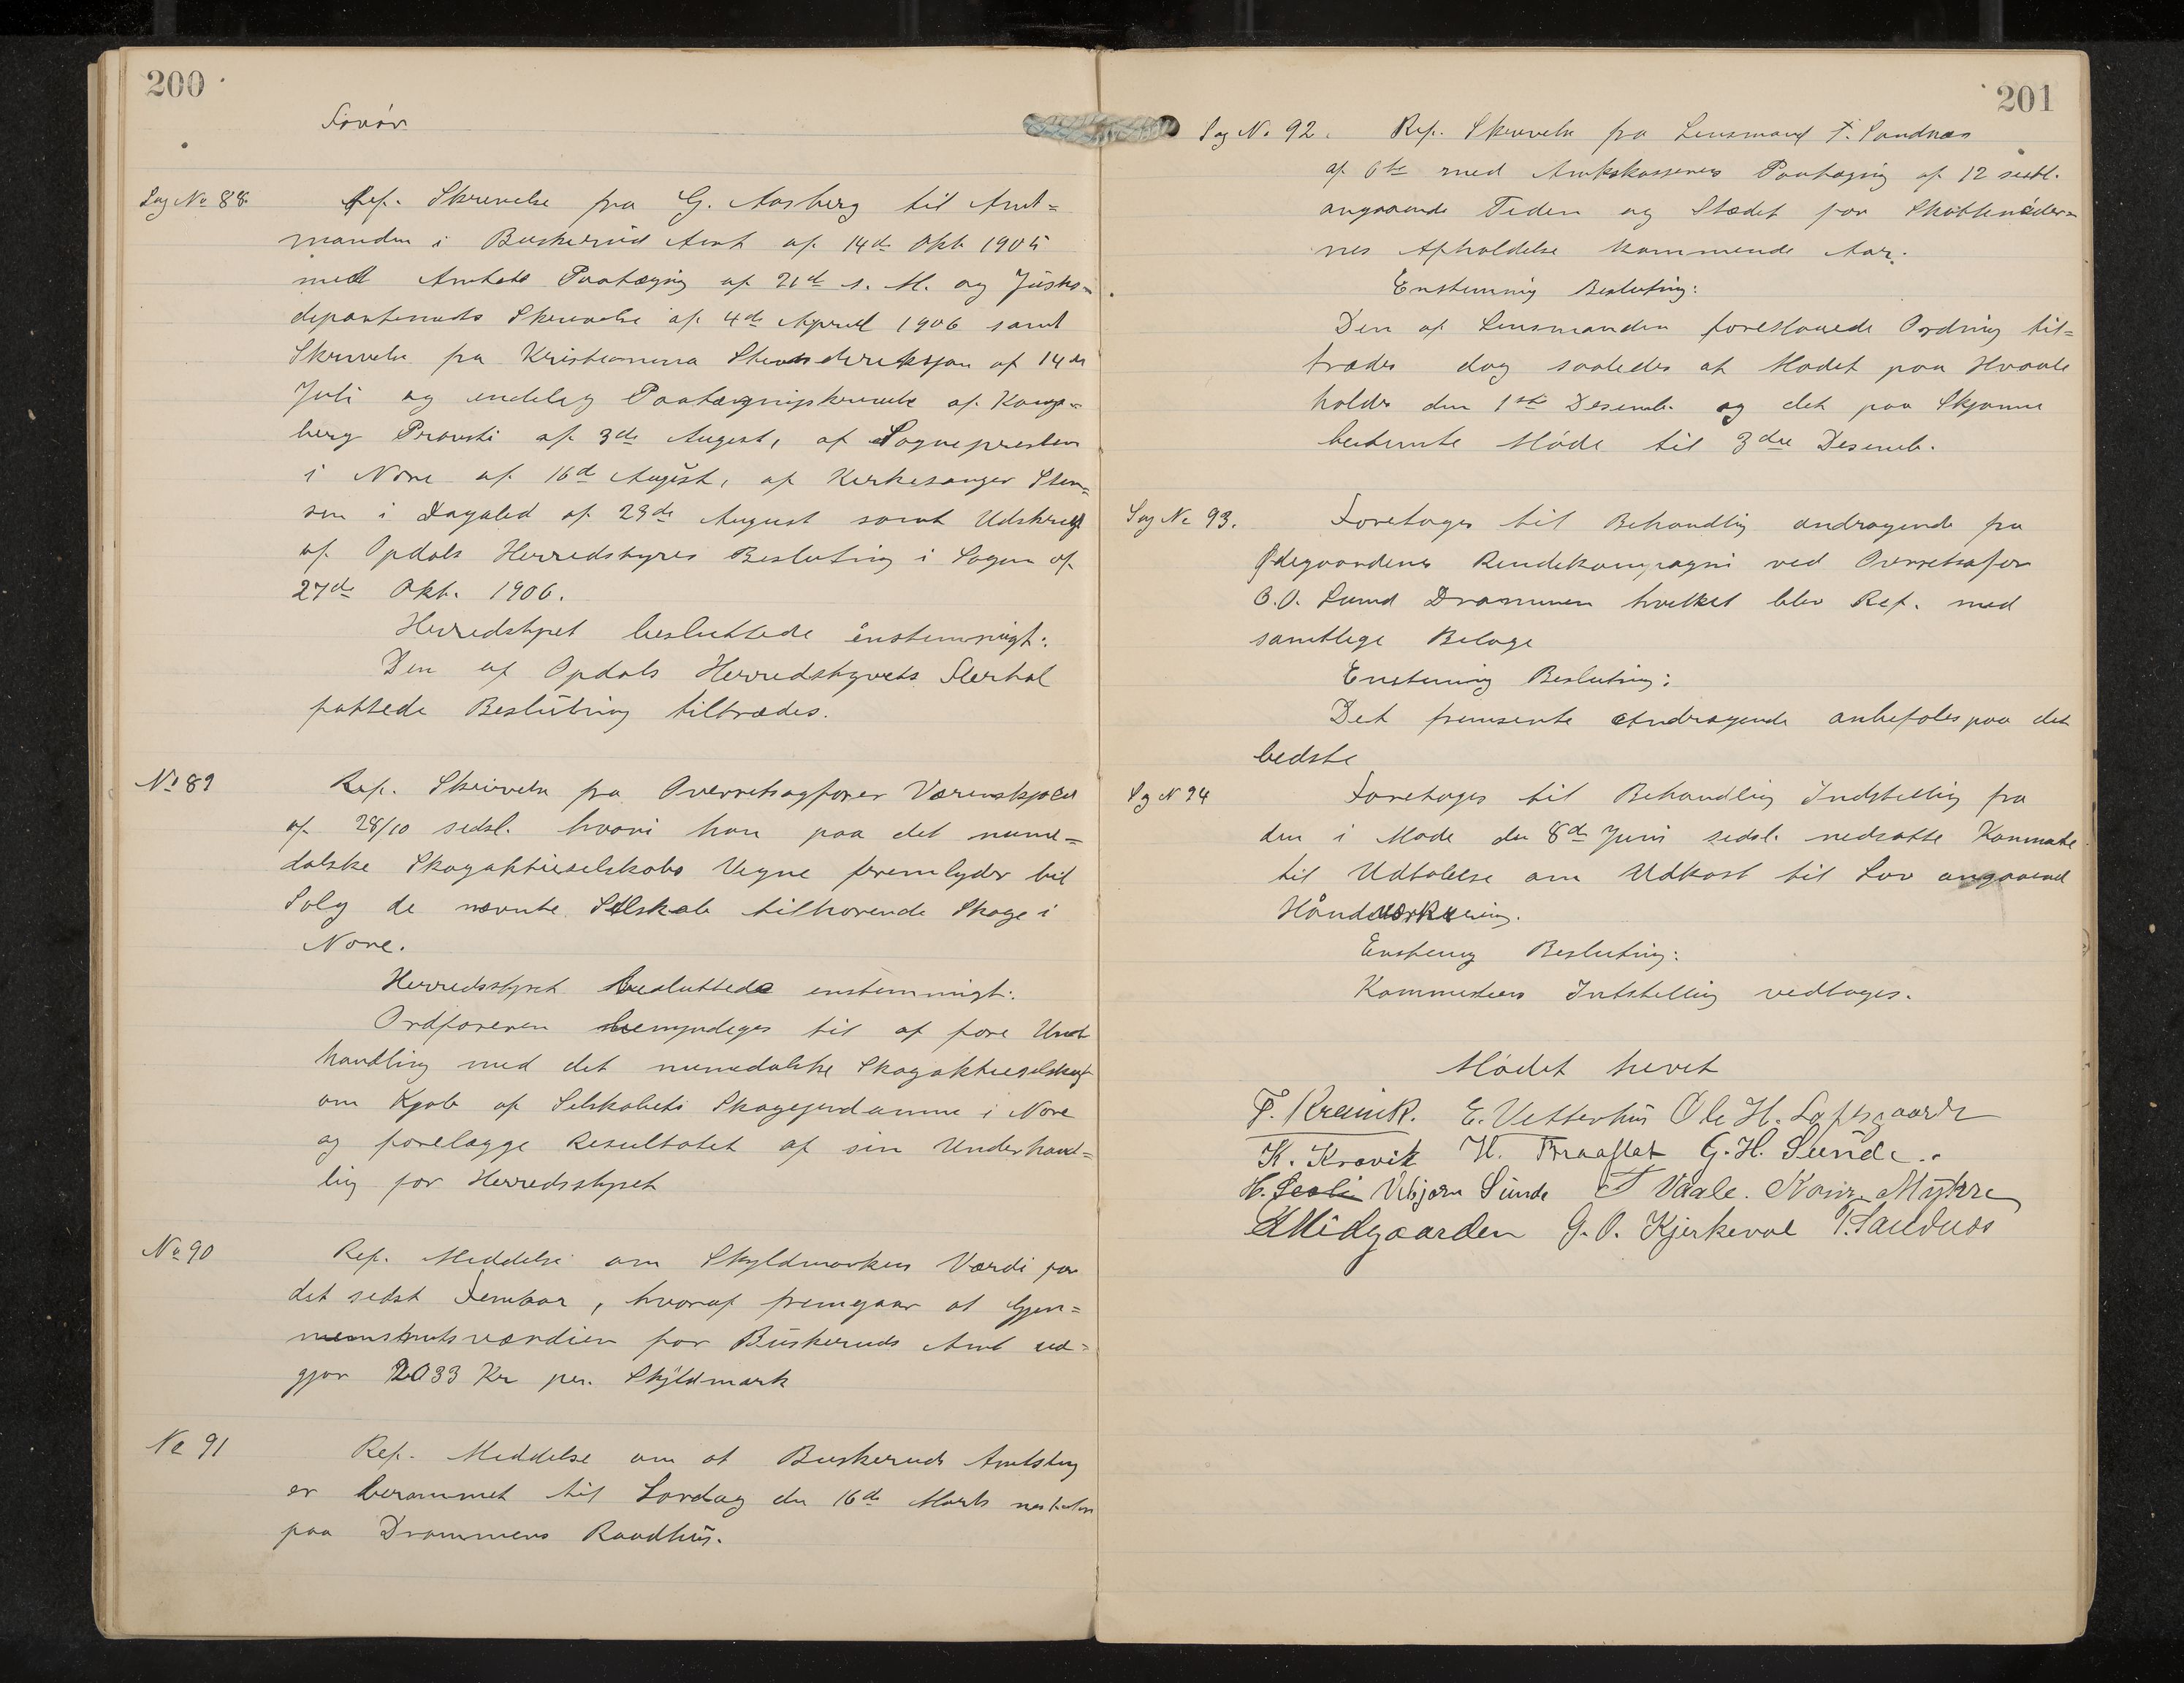 200
Sag No 88.
Ref. Skrivelse fra G. Aasberg til Amt=
manden i Buskerud Amt af 14de Okt. 1905
med Amtets Paategnig af 21de s. M. og Justis-
departements Skrivelse af 4de April 1906 samt
Skrivelse fra Kristiania Stiftsdireksjon af 14de
Juli og endelig Paategnigskrivelse af Kongs-
berg Provsti af 3de August, af Sognepresten
i Nore af 16de August, af Kirkesanger Sten=
sen i Dagalid af 23de August samt Udskrift
af Opdals Herredstyres Beslutnig i Sagen af
27de Okt. 1906.
Herredstyret besluttede enstemmigt:
Den af Opdals Herredstyrets Flertal
fattede Beslutning tiltrædes.
No 89
Ref. Skrivelse fra Overretsagfører Værenskjold
af 28/10 sidsl. hvori han paa det nume=
dalske Skogaktieselskabs Vegne fremlyder til
Salg de nævnte Selskab tilhørende Skoge i
Nore.
Herredsstyret besluttede enstemmigt:
Ordføreren bemyndiges til at føre Und
handling med det numedalske Skogaktieselskap
om Kjøb af Selskabets Skogejendomme i Nore
og forelægge Resultatet af sin Underhand=
lig for Herredsstyret
No 90
Ref. Meddelse om Skyldmarkens Værdi for
det sidst Femaar, hvoraf fremgaar at Gjen=
nemsnitsværdien for Buskeruds Amt ud=
gjør 2033 Kr per. Skyldmark
No 91
Ref. Meddelse om at Buskeruds Amtsting
er berammet til Lørdag den 16de Marts
paa Drammens Raadhus.
201
Sag No 92.
Ref. Skrivelse fra Lensmand T. Sandnæs
af 6te med Amtskassererens Paategnig af 12 sidstl.
angaaende Tiden og Stedet for Skattemøder=
nes Afholdelse kommende Aar.
Enstemmig Beslutnig:
Den af Lensmanden foreslaaede Ordnig til=
trædes dog saaledes at Mødet paa Hvaale
holdes den 1ste Desemb. og det paa Skjønne
bestemte Møde til 3die Desemb.
Sag No 93.
Foretoges til Behandlig andragende fra
Ødegaardenes Rendekompagni ved Overretsafør
B.O. Lund Drammen hvilket blev Ref. med
samtlige Belage
Enstemig Beslutnig:
Det fremsente Andragende anbefales paa det
bedste
Sg N 94
Foretoges til Behandlig Indstillig fra
den i Møde den 8de Juni sidstl. nedsatte Kommite
til Udtalelse om Udkast til Lov angaaend
Håndverksnæring.
Enstemig Beslutnig:
Kommiteens Intstillig vedtoges.
Mødet hevet
T. Kravik. E. Vetterhus Ole H. Loftsgaard
K. Kravik H. Braaflat G. H. Sunde.
H. Seoli Vebjørn Sunde T Vaale. Myhre
Midgaarden G. O. Kjerkevol T. Sandnæs